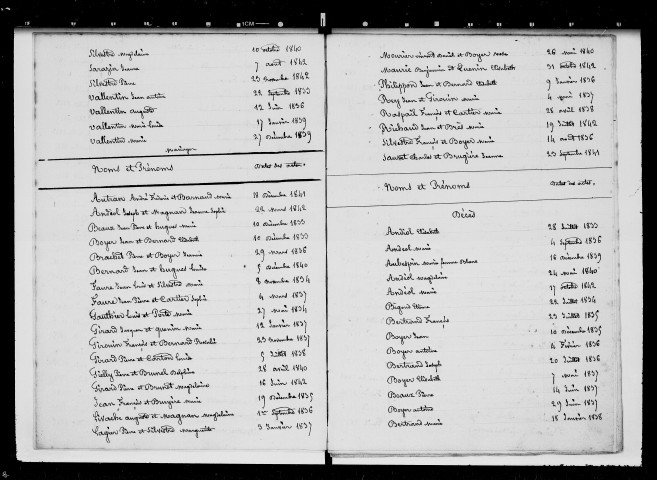 Silvestre Magdelaine 10 octobre 1840
Sarazin Jeanne 7 août 1842
Silvestre Pierre 23 novembre 1842
Vallentin Jean antoine 28 Septembre 1833
Vallentin auguste 12 Juin 1836
Vallentin Marie Louise 17 Janvier 1839
Vallentin Marie 27 Décembre 1839
Mariages
Noms et Prénoms Dates des actes.
Autran André Frédéric et Barnaud Marie 28 Décembre 1841
Andéol Joseph et Magnan Jeanne Sophie 22 Mars 1842
Beaux Jean Pierre et hugues Marie 10 décembre 1833
Boyer Jean et Bernard Elisabeth 10 décembre 1833
Brachet Pierre et Boyer Jeannie 29 Mars 1836
Bernard Jean et hugues Louise 5 décembre 1840
Faure Jean Louis et Silvestre Marie 8 novembre 1834
Faure Jean Pierre et Cartier Sophie 4 Mars 1837
Gauthier Louis et Marie 27 Mai 1834
Girard Jacques et guenin Marie 12 Janvier 1837
Gironin François et Bernard 23 novembre 1837
Girard Pierre et Louise 5 Juillet 1838
Pierre et Brunel Delphine 28 avril 1840
Girard Pierre et Brunet Magdelaine 16 Juin 1842
Jean François et Marie 19 Décembre 1835
auguste et Magnan Magdelaine 1er Septembre 1836
Pierre et Silvestre Marguerite 3 Janvier 1837
Mourier et Boyer 26 Mai 1840
Maurie Benjamin et Guenin Elisabeth 31 octobre 1842
Philippon Jean et Bernard Elisabeth 9 Janvier 1836
Rey Jean et Gironin Marie 4 Mai 1837
Raspail François et Cartier Marie 28 avril 1838
Richaud Jean et Brès Marie 19 Juillet 1842
Silvestre François et Boyer Marie 14 août 1836
Sauvet Charles et Brugière Jeanne 23 Septembre 1841
Noms et Prénoms Dates des actes.
Décès
Andéol Elisabeth 28 Juillet 1833
Andéol Marie 4 Septembre 1836
Aubespin Marie femme Blanc 16 décembre 1839
Andéol Magdelaine 24 Mai 1840
Andéol Marie 17 octobre 1842
Bigord 22 Juillet 1834
Bertrand François 23 Juillet 1835
Boyer Jean 10 décembre 1835
Boyer antoine 4 Février 1836
Bertrand Joseph 20 Juillet 1836
Boyer Elisabeth 7 Mai 1837
Beaux Pierre 14 Juin 1837
Boyer antoine 29 Juin 1837
Bertrand Marie 18 Janvier 1838